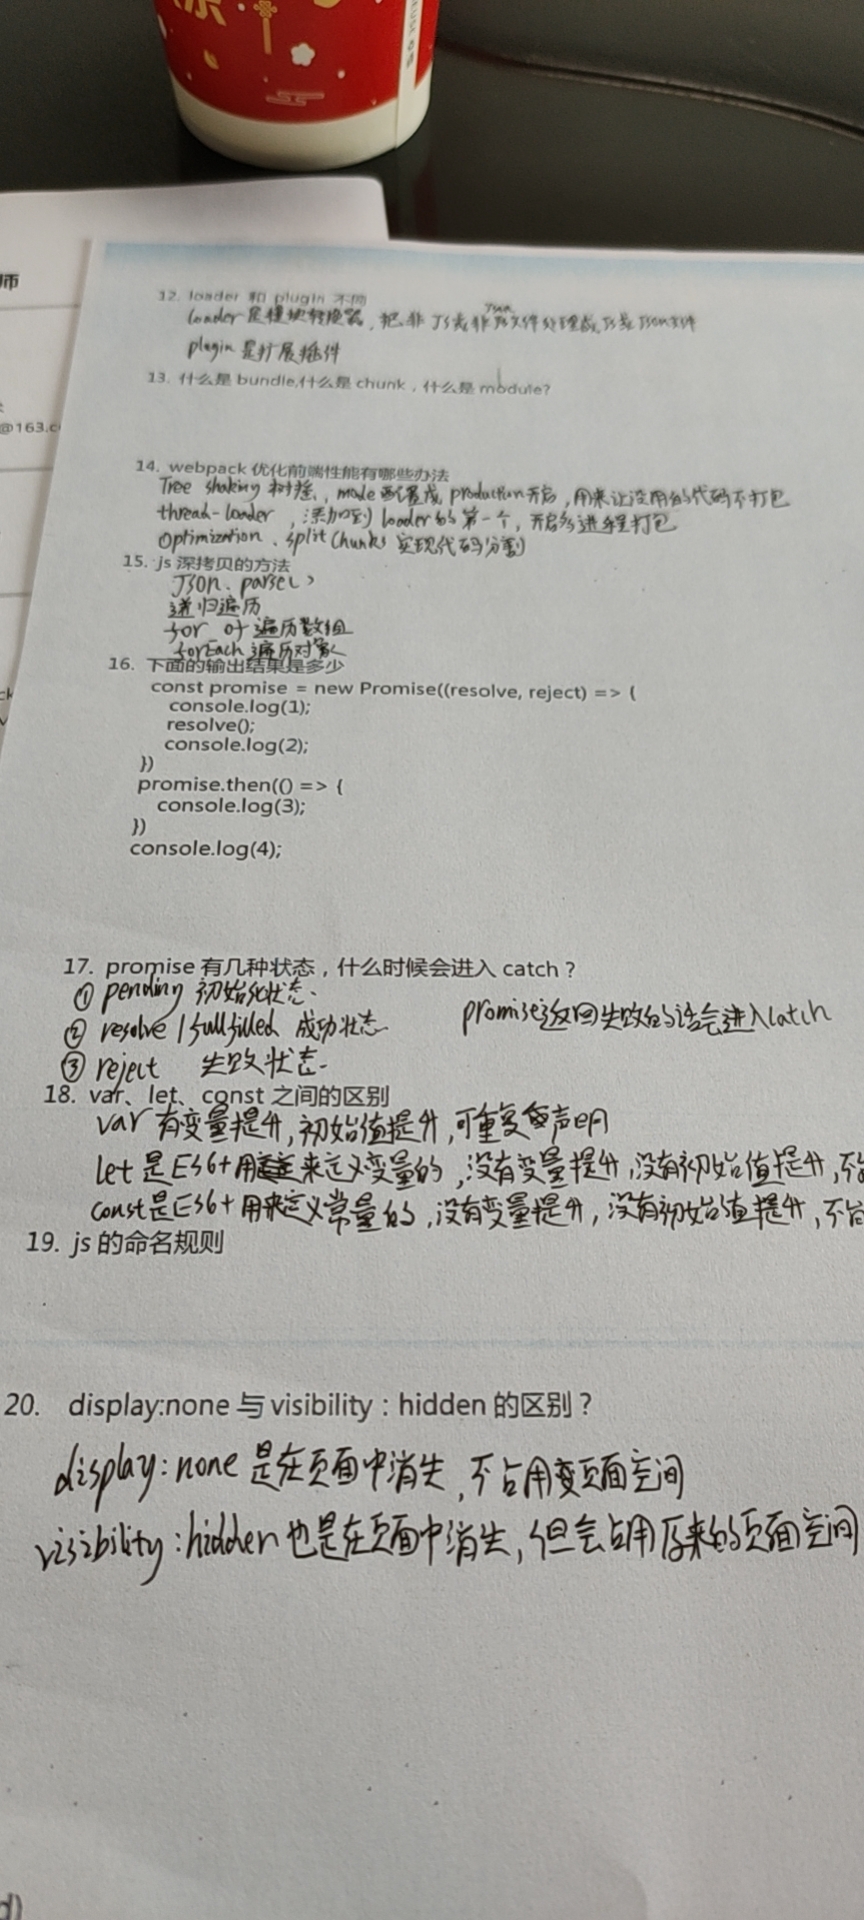 师
@163.c
12. loader 和 plugin 不同
loader 是模块转换器，把非 JS或非Json文件处理成JS或Json文件
plugin 是扩展插件
13. 什么是 bundle,什么是 chunk，什么是 module?
14. webpack 优化前端性能有哪些办法
Tree shaking 树摇，mode 配置成 production 开启，用来让没用的代码不打包
thread-loader ，添加到 loader 的第一个，开启多进程打包
Optimization、split Chunks 实现代码分割
15. js 深拷贝的方法
JSON.parse()
递归遍历
for of 遍历数组
forEach 遍历对象
16. 下面的输出结果是多少
const promise = new Promise((resolve, reject) => {
console.log(1);
resolve();
console.log(2);
})
promise.then(() => {
console.log(3);
})
console.log(4);
17. promise 有几种状态，什么时候会进入 catch？
① pending 初始化状态.
② resolve / fullfilled 成功状态 promise返回失败的话会进入catch
③ reject 失败状态.
18. var、let、const 之间的区别
var 有变量提升,初始值提升,可重复声明
let 是ES6+用来定义变量的,没有变量提升,没有初始值提升,不
const是ES6+用来定义常量的,没有变量提升,没有初始值提升,不
19. js 的命名规则
20. display:none 与 visibility：hidden 的区别？
display:none 是在页面中消失,不占用页面空间
visibility:hidden 也是在页面中消失,但会占用原来的页面空间
d)